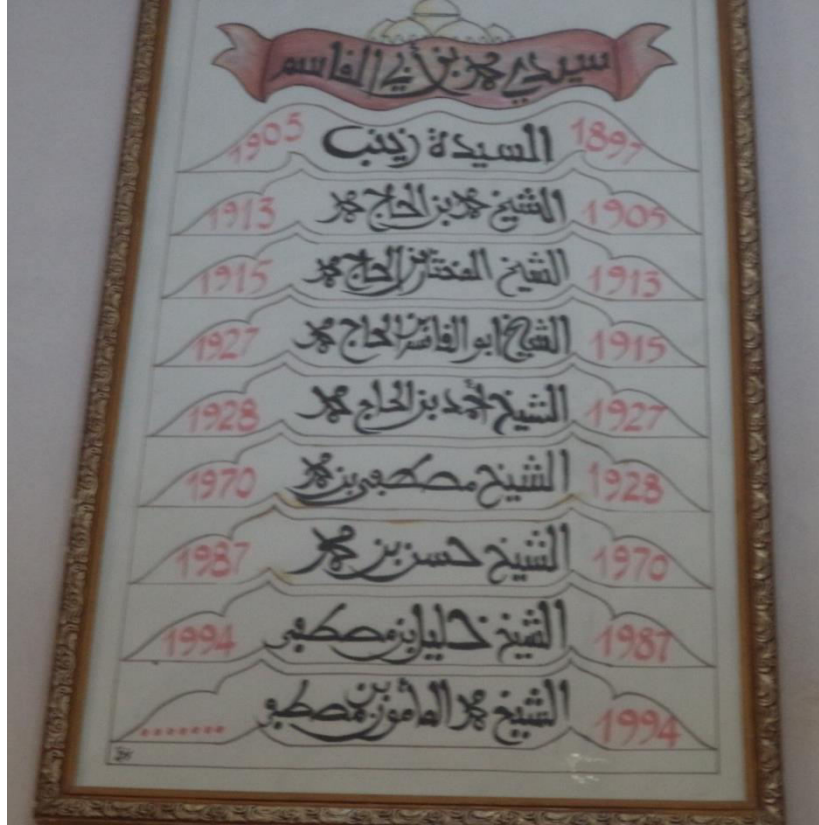 سيدي محمد بن أبي القاسم
1897 السيدة زينب 1905
1905 الشيخ محمد بن الحاج محمد 1913
1913 الشيخ المختار بن الحاج محمد 1915
1915 الشيخ ابو القاسم بن الحاج محمد 1927
1927 الشيخ أحمد بن الحاج محمد 1928
1928 الشيخ مصطفى بن محمد 1970
1970 الشيخ حسن بن محمد 1987
1987 الشيخ خليل بن مصطفى 1994
1994 الشيخ محمد المأمون بن مصطفى ........